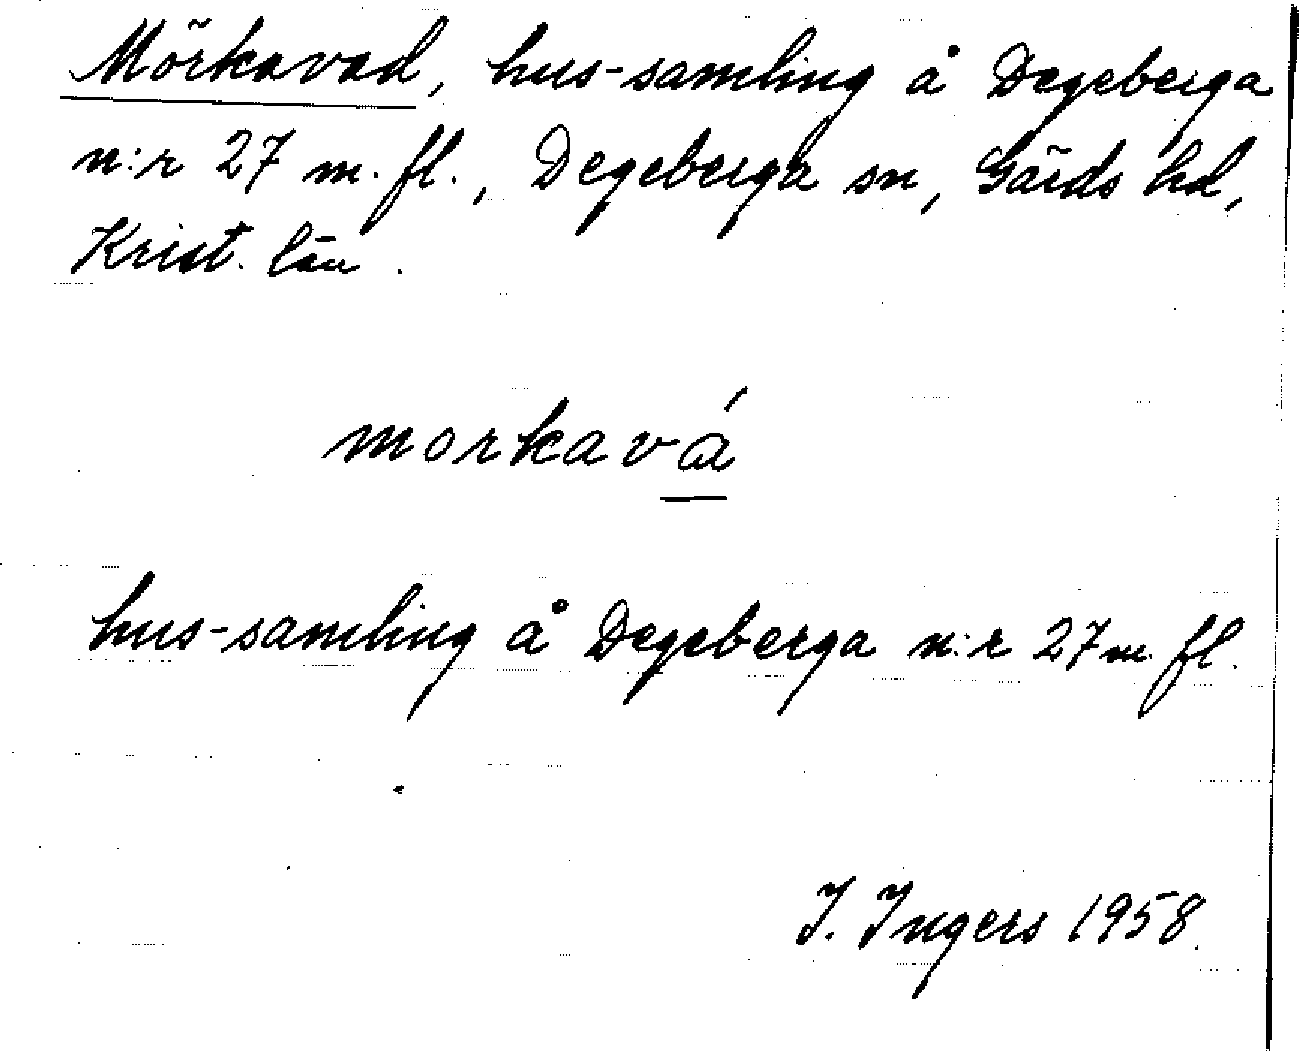 Mörkavad, hus-samling å Degeberga
n:r 27 m. fl., Degeberga sn, Gärds hd,
Krist. län.
morkavá
hus-samling å Degeberga n:r 27 m. fl.
I. Ingers 1958.